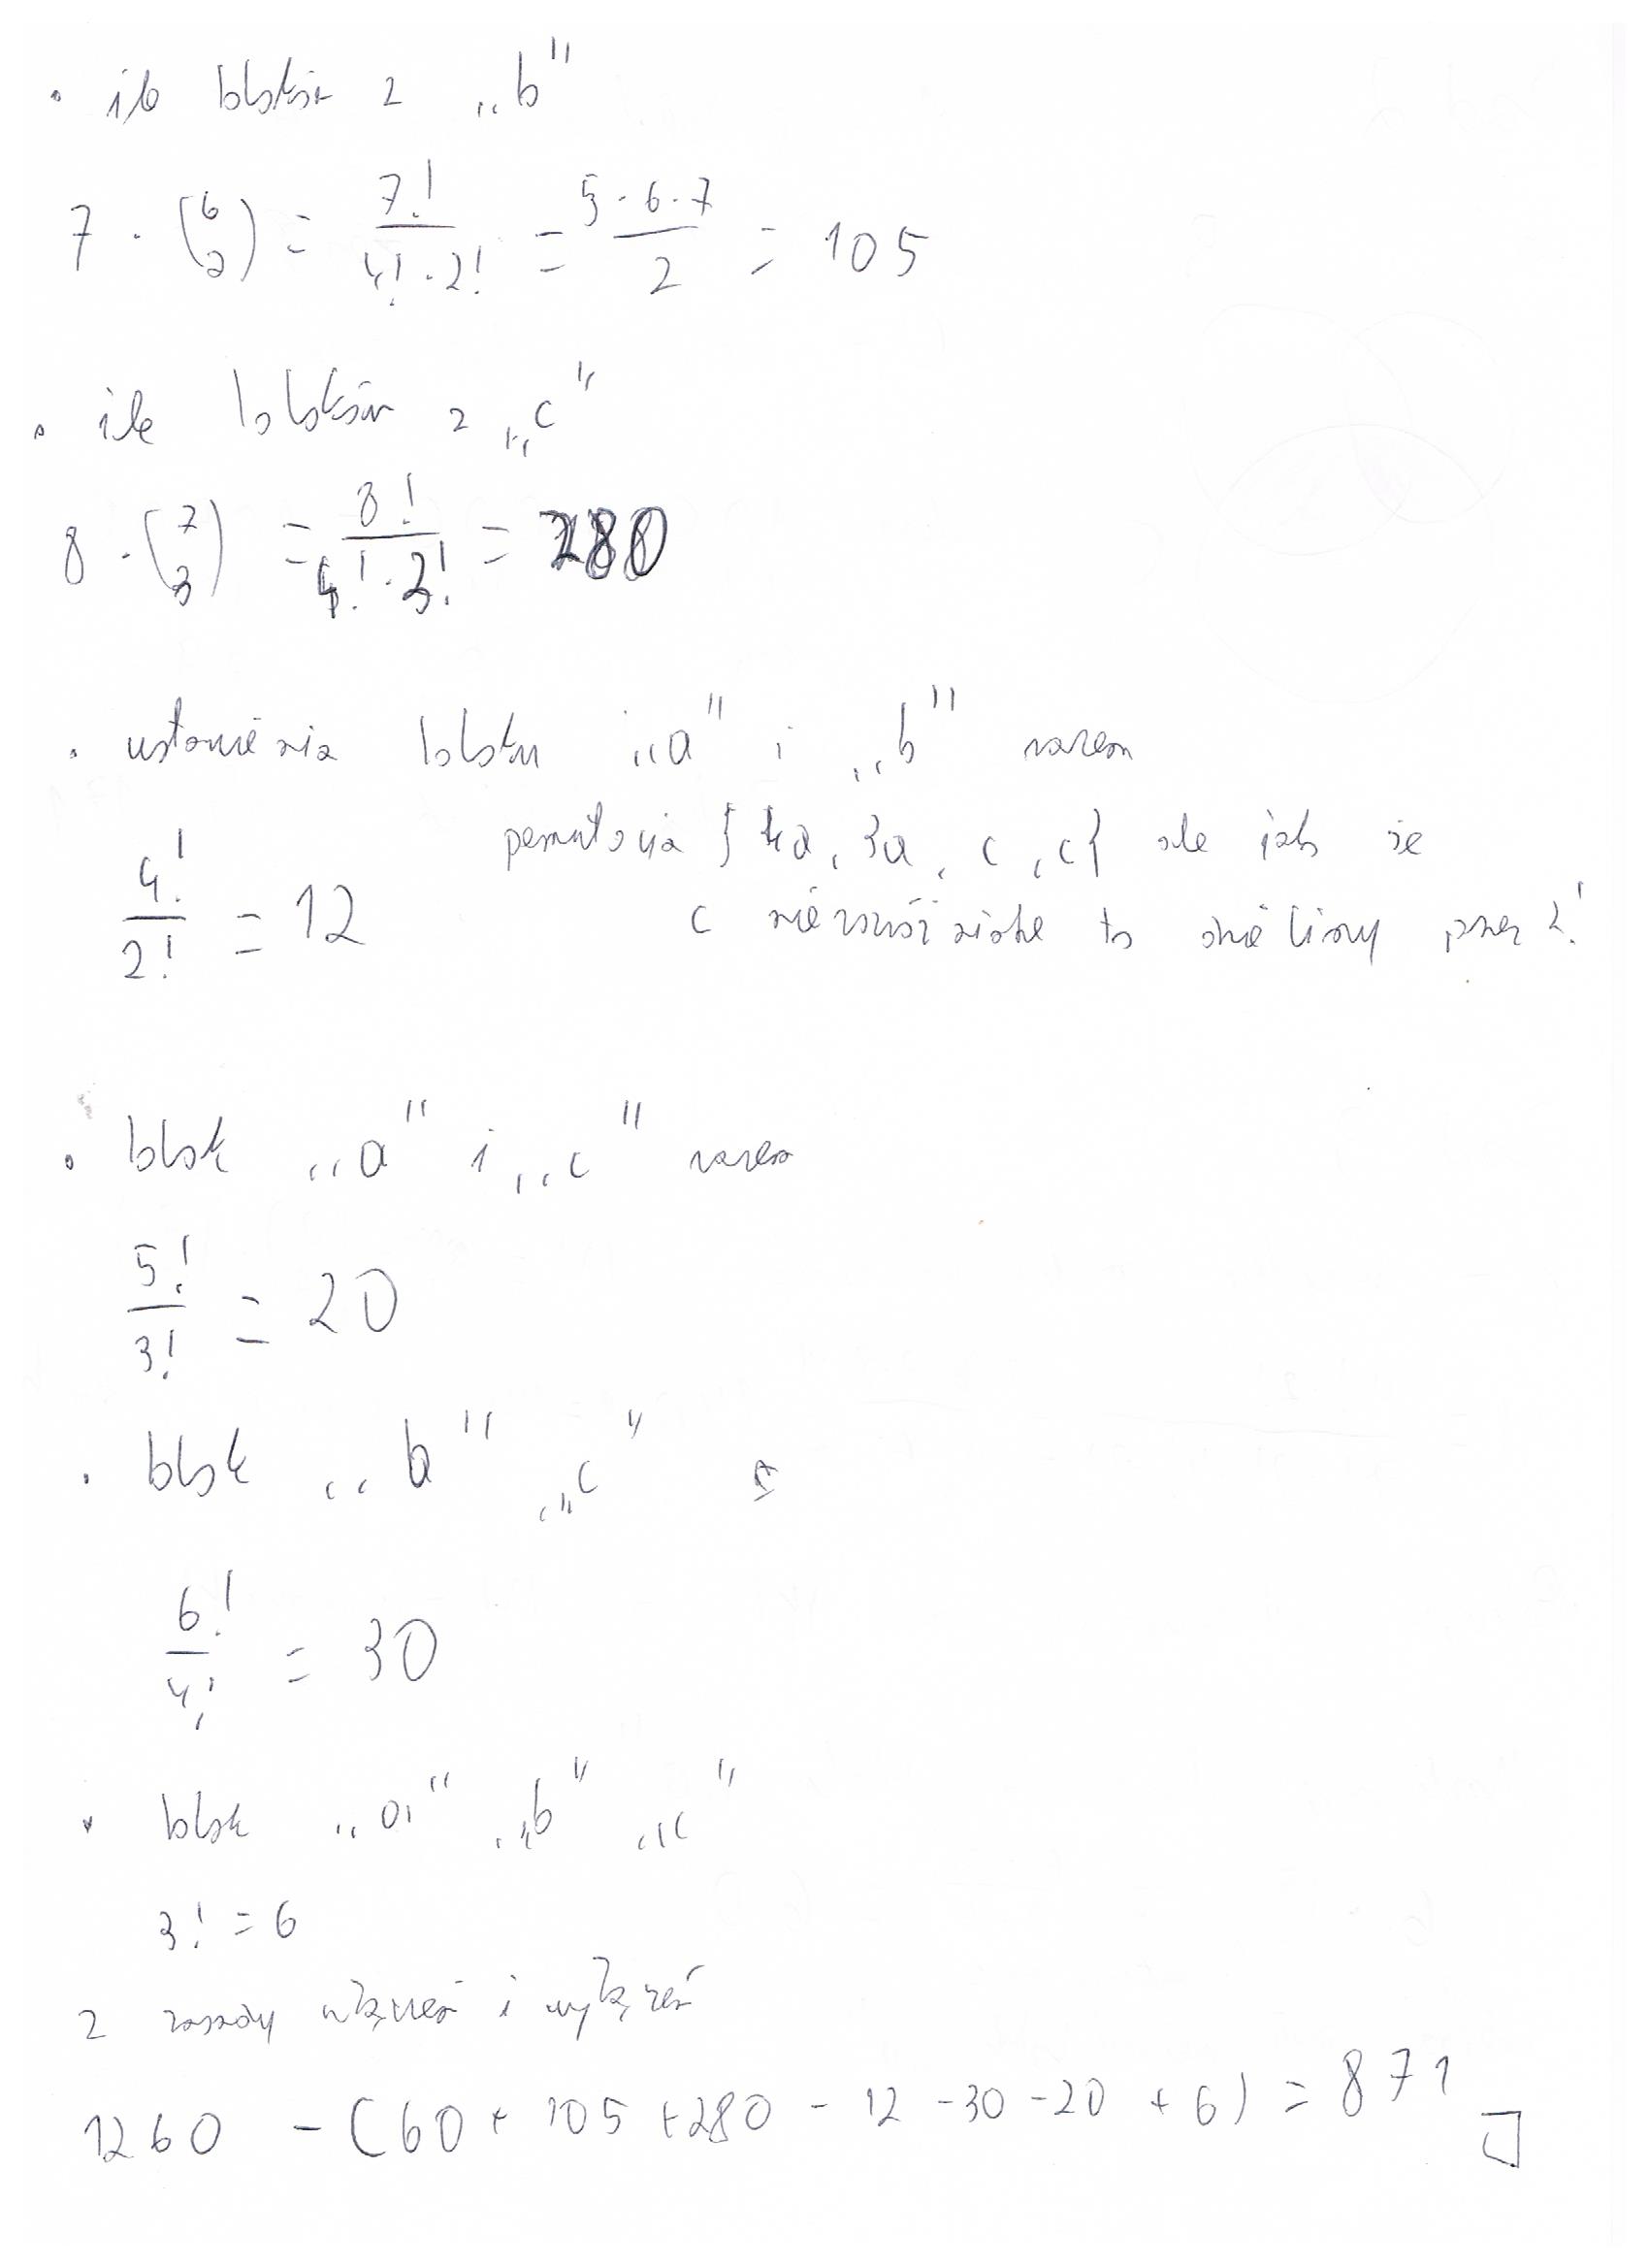 • ile bloków z „b"
7 · (6 2) = 7! / 4! · 2! = 5 · 6 · 7 / 2 = 105
• ile bloków z „c"
8 · (7 3) = 8! / 4! · 3! = 280
• ustawienia bloku „a" i „b" razem
permutacja {4a, 3a, c, c} ale jak są
4! / 2! = 12
c nierozróżnialne to dzielimy przez 2!
• blok „a" i „c" razem
5! / 3! = 20
• blok „b" „c"
6! / 4! = 30
• blok „a" „b" „c"
3! = 6
z zasady włączeń i wyłączeń
1260 - (60 + 105 + 280 - 12 - 30 - 20 + 6) = 871